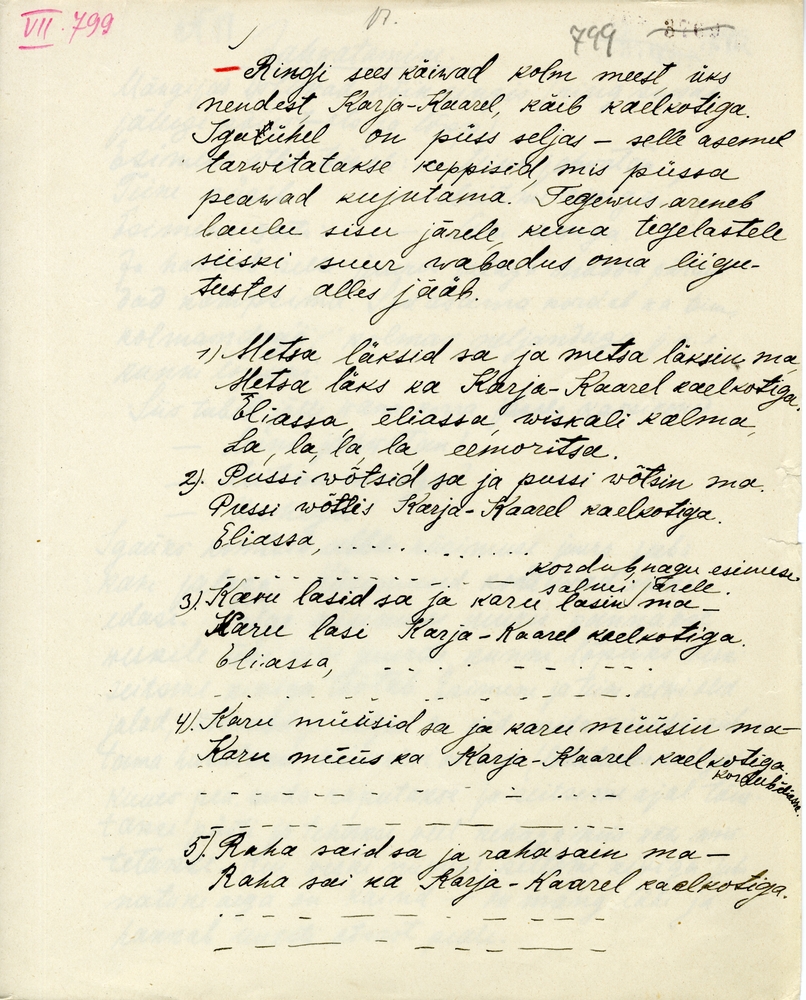 VII. 799
VI.
799
3769
— Ringi sees käiwad kolm meest, üks
nendest, Karja-Kaarel, käib kaelkotiga.
Igaühel on püss seljas – selle asemel
tarwitatakse keppisid, mis püssa
peawad kujutama. Tegewus areneb
laulu sisu järele, kuna tegelastele
siiski suur wabadus oma liigu-
tustes alles jääb.
1) Metsa läksid sa ja metsa läksin ma,
Metsa läks ka Karja-Kaarel kaelkotiga.
Eliassa, eliassa, wiskali kalma,
La, la, la, la, eemoritsa.
2). Püssi wõtsid sa ja püssi wõtsin ma.
Püssi wõttis Karja-Kaarel kaelkotiga.
Eliassa, . . . . . . . . . .
kordub nagu esimese
salmi järele.
3). Karu lasid sa ja karu lasin ma –
Karu lasi Karja-Kaarel kaelkotiga.
Eliassa, . . . . . . . . . .
4). Karu müüsid sa ja karu müüsin ma –
Karu müüs ka Karja-Kaarel kaelkotiga.
kordub
5). Raha said sa ja raha sain ma –
Raha sai ka Karja-Kaarel kaelkotiga.